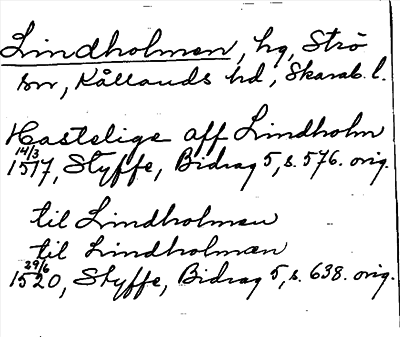 Lindholmen, hg, Strö
sn, Kållands hd, Skarab. l.
Hastelige aff Lindholm
14/3 1517, Styffe, Bidrag 5, s. 576. orig.
til Lindholmen
til Lindholmæn
29/6 1520, Styffe, Bidrag 5, s. 638. orig.